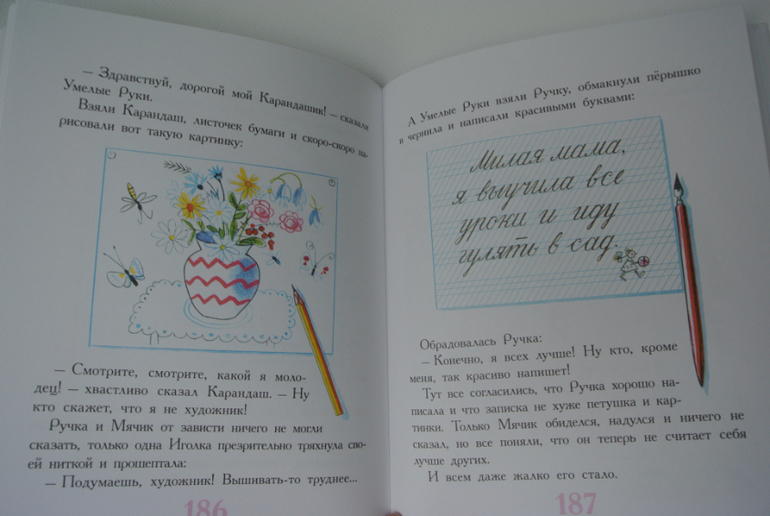 — Здравствуй, дорогой мой Карандашик! — сказали
Умелые Руки.
Взяли Карандаш, листочек бумаги и скоро-скоро на-
рисовали вот такую картинку:
— Смотрите, смотрите, какой я моло-
дец! — хвастливо сказал Карандаш. — Ну
кто скажет, что я не художник!
Ручка и Мячик от зависти ничего не могли
сказать, только одна Иголка презрительно тряхнула сво-
ей ниткой и прошептала:
— Подумаешь, художник! Вышивать-то труднее...
186
А Умелые Руки взяли Ручку, обмакнули пёрышко
в чернила и написали красивыми буквами:
Милая мама,
я выучила все
уроки и иду
гулять в сад.
Обрадовалась Ручка:
— Конечно, я всех лучше! Ну кто, кроме
меня, так красиво напишет!
Тут все согласились, что Ручка хорошо на-
писала и что записка не хуже петушка и кар-
тинки. Только Мячик обиделся, надулся и ничего не
сказал, но все поняли, что он теперь не считает себя
лучше других.
И всем даже жалко его стало.
187